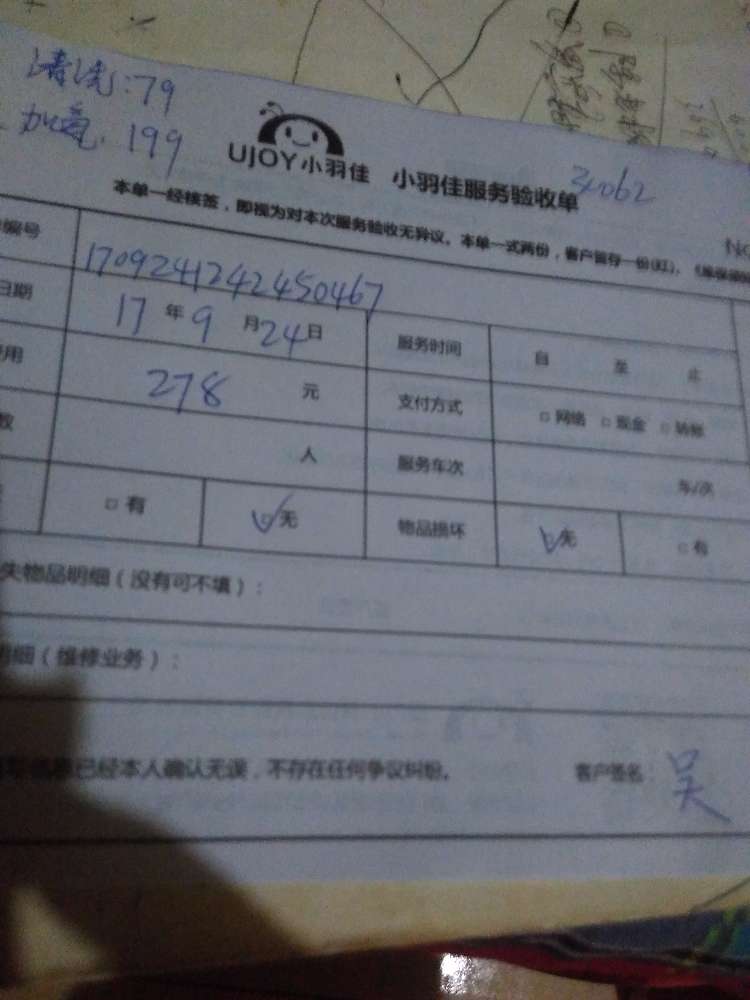 清洗:79
加氟.199
UJOY小羽佳 小羽佳服务验收单
34062
本单一经核签，即视为对本次服务验收无异议。本单一式两份，客户留存一份(红)、
No
编号
1709241242450467
日期 17年9月24日 服务时间 自 至 止
用 278 元 支付方式 □网络 □现金 □转账
数 人 服务车次 车/次
□有 ☑无 物品损坏 ☑无 □有
失物品明细（没有可不填）：
明细（维修业务）：
信息已经本人确认无误，不存在任何争议纠纷。 客户签名：吴